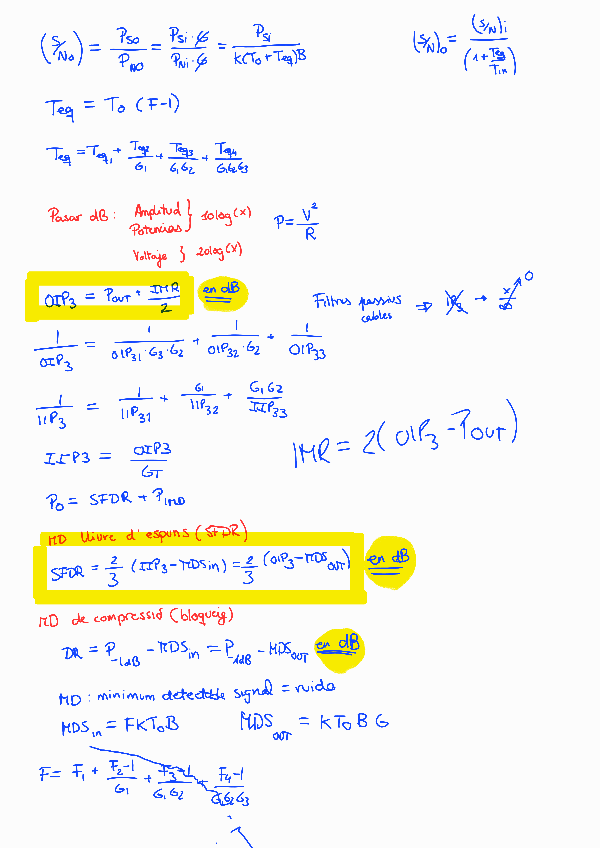 (S/N₀) = PSO/PNO = PSi·G/PNi·G = PSi/K(To+Teq)B
(S/N)o = (S/N)i/(1+Teq/Tin)
Teq = To (F-1)
Teq = Teq1 + Teq2/G1 + Teq3/G1G2 + Teq4/G1G2G3
Pasar dB: Amplitud Potencias } 10log(x)
P = V²/R
Voltaje } 20log(x)
OIP3 = Pout + IMR/2 en dB
Filtros passius cables ⇒ IP3 → x/0 ↗ 0
1/OIP3 = 1/OIP31·G3·G2 + 1/OIP32·G2 + 1/OIP33
1/IIP3 = 1/IIP31 + G1/IIP32 + G1G2/IIP33
IMR = 2(OIP3 - POUT)
IIP3 = OIP3/GT
Po = SFDR + PIMD
MD lliure d'espuris (SFDR)
SFDR = 2/3 (IIP3 - MDSin) = 2/3 (OIP3 - MDSOUT) en dB
MD de compressió (bloqueig)
DR = P-1dB - MDSin = P-1dB - MDSOUT en dB
MD: minimum detectable signal = ruido
MDSin = FKToB MDSOUT = KToBG
F = F1 + F2-1/G1 + F3-1/G1G2 + F4-1/G1G2G3